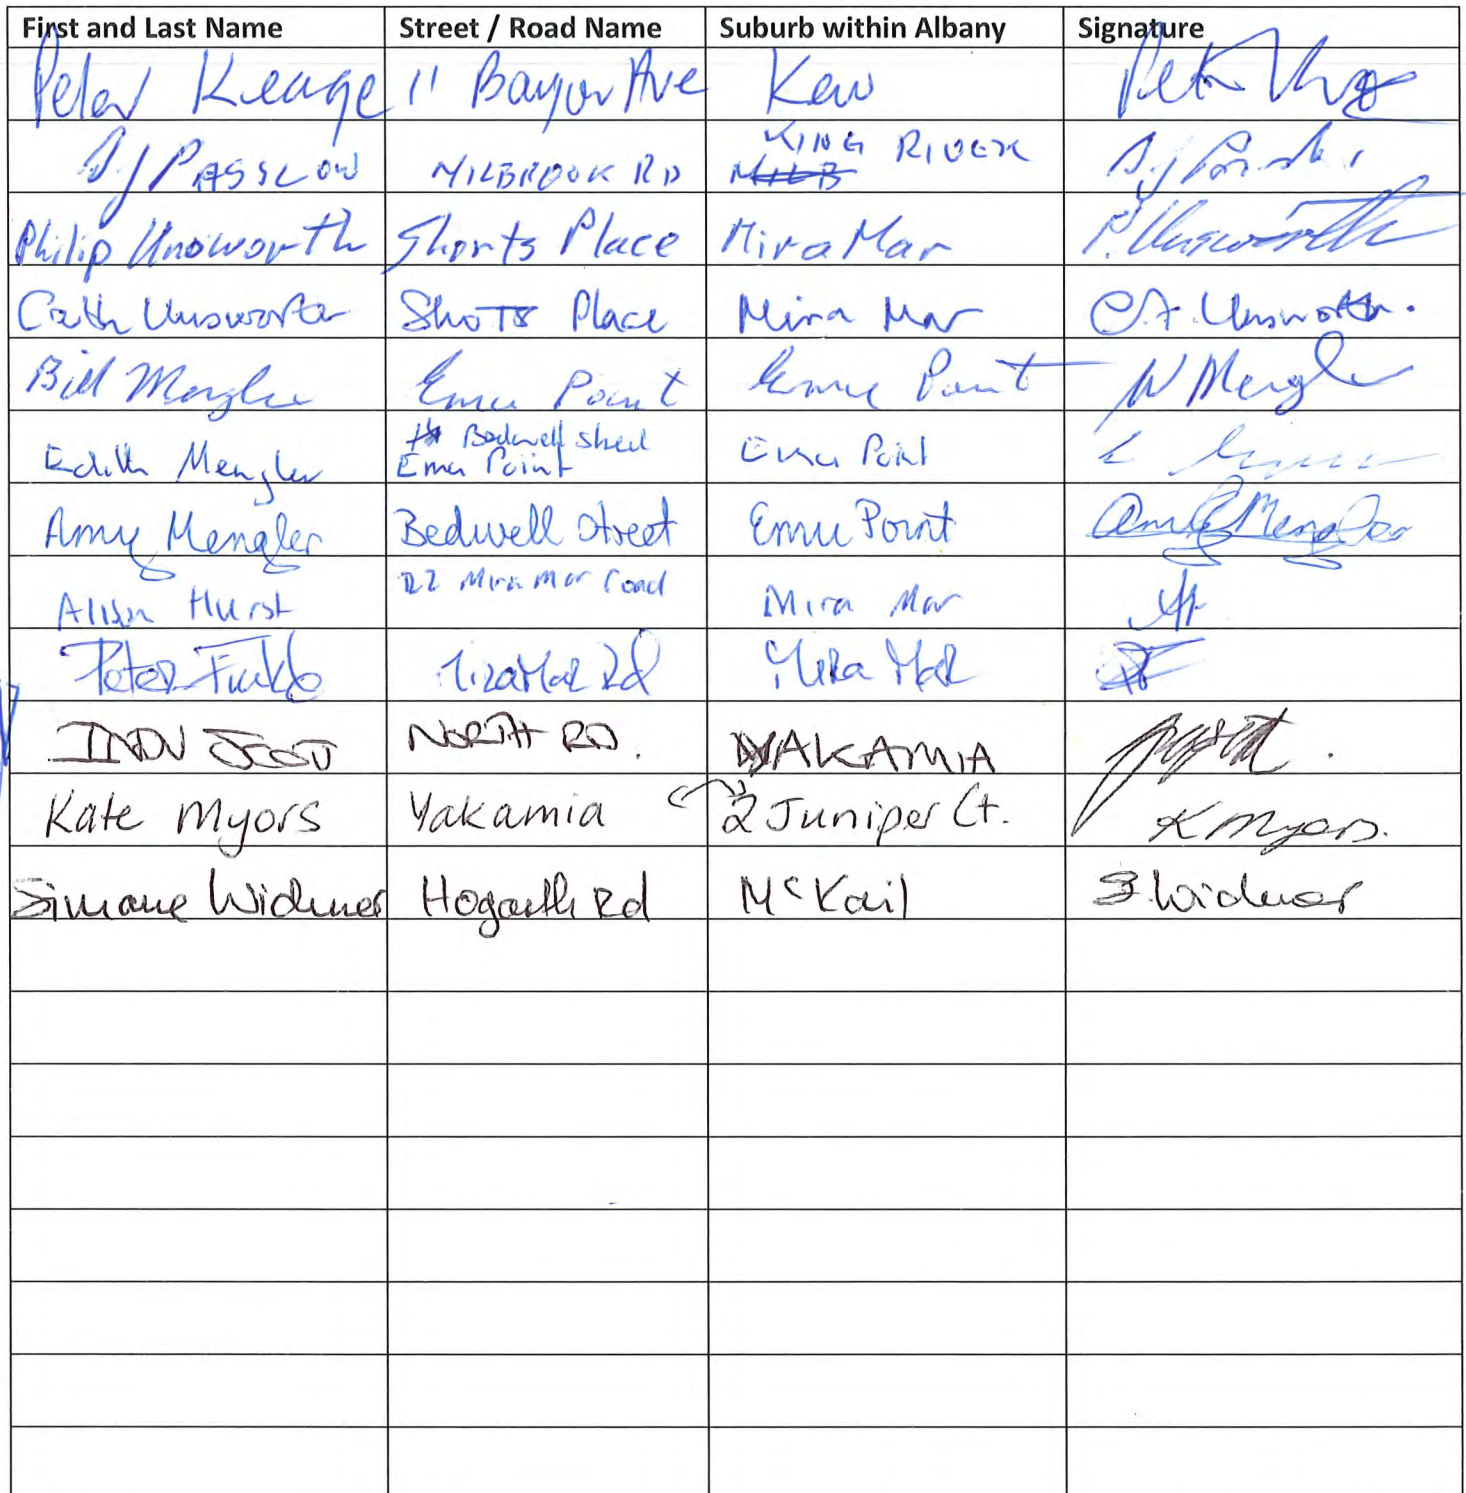 First and Last Name Street / Road Name Suburb within Albany Signature
Peter Keage 11 Bayor Ave Kew
KING RIVER
DJ PASSLOW MILBROOK RD MILB
Philip Unsworth Shorts Place Mira Mar P. Unsworth
Cath Unsworth Shorts Place Mira Mar C.F. Unsworth.
Bill Mengler Emu Point Emu Point W Mengler
Bedwell Street
Edith Mengler Emu Point Emu Point
Amy Mengler Bedwell Street Emu Point Amy Mengler
22 Mira Mar road
Alison Hurst Mira Mar AH
Peter Mira Mar Rd Mira Mar
NORTH RD. YAKAMIA
Kate Myors Yakamia 2 Juniper Ct. K Myors.
Simone Widmer Hogarth Rd McKail S. Widmer